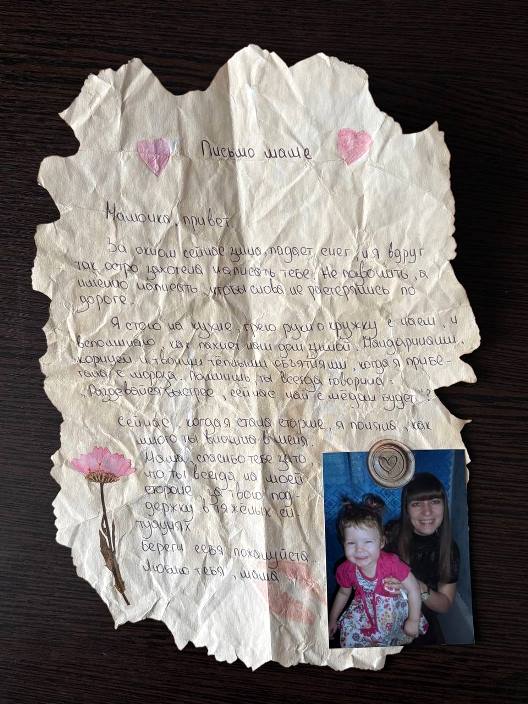 Письмо маме
Мамочка, привет.
За окном сейчас зима, падает снег, и я вдруг
так остро захотела написать тебе. Не позвонить, а
именно написать, чтобы слова не растерялись по
дороге.
Я стою на кухне, грею руки о кружку с чаем, и
вспоминаю как пахнет наш дом зимой. Мандаринами,
корицей и твоими тёплыми объятиями, когда я прибе-
гала с мороза. Помнишь, ты всегда говорила:
„Раздевайся быстрее, сейчас чай с мёдом будет"?
Сейчас, когда я стала старше, я поняла, как
много ты вложила в меня.
Мама, спасибо тебе за то
что ты всегда на моей
стороне за твою под-
держку в тяжёлых си
туациях
Береги себя, пожалуйста
Люблю тебя, мама